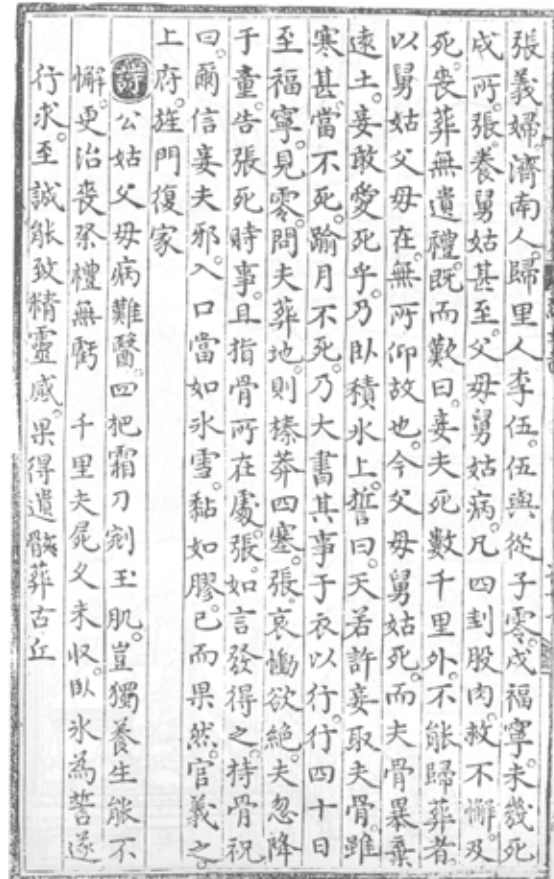 張義婦。濟南人。歸里人李伍。伍與從子零戍福寧。未幾死
戍所。張養舅姑甚至。父母舅姑病。凡四刲股肉。救不懈。及
死。喪葬無遺禮。既而歎曰。妾夫死數千里外。不能歸葬者。
以舅姑父母在。無所仰故也。今父母舅姑死。而夫骨暴棄
遠土。妾敢愛死乎。乃臥積氷上。誓曰。天若許妾取夫骨。雖
寒甚。當不死。踰月不死。乃大書其事于衣以行。行四十日
至福寧。見零。問夫葬地。則榛莽四塞。張哀慟欲絶。夫忽降
于童。告張死時事。且指骨所在處。張如言發得之。持骨祝
曰。爾信妾夫邪。入口當如氷雪。黏如膠。已而果然。官義之。
上府。旌門復家
詩 公姑父母病難醫。四把霜刀剜玉肌。豈獨養生能不
懈。更治喪祭禮無虧 千里夫屍久未収。臥氷為誓遂
行求。至誠能致精靈感。果得遺骸葬古丘